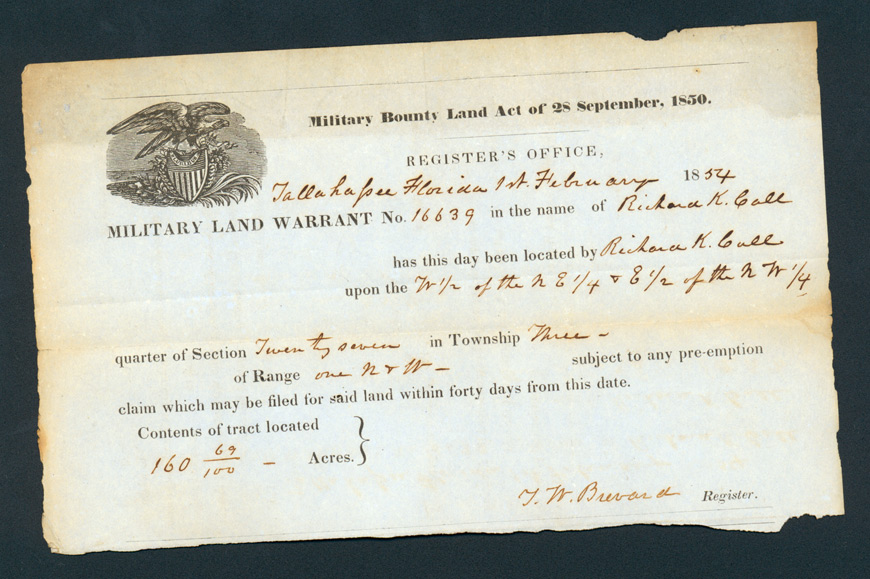 Military Bounty Land Act of 28 September, 1850.
REGISTER'S OFFICE,
Tallahassee Florida 1st. February 1854
MILITARY LAND WARRANT No. 16639 in the name of Richard K. Call
has this day been located by Richard K. Call
upon the W 1/2 of the N E 1/4 & E 1/2 of the N W 1/4
quarter of Section Twenty seven in Township Three -
of Range one N & W - subject to any pre-emption
claim which may be filed for said land within forty days from this date.
Contents of tract located
160 69/100 - Acres.
T. W. Brevard Register.